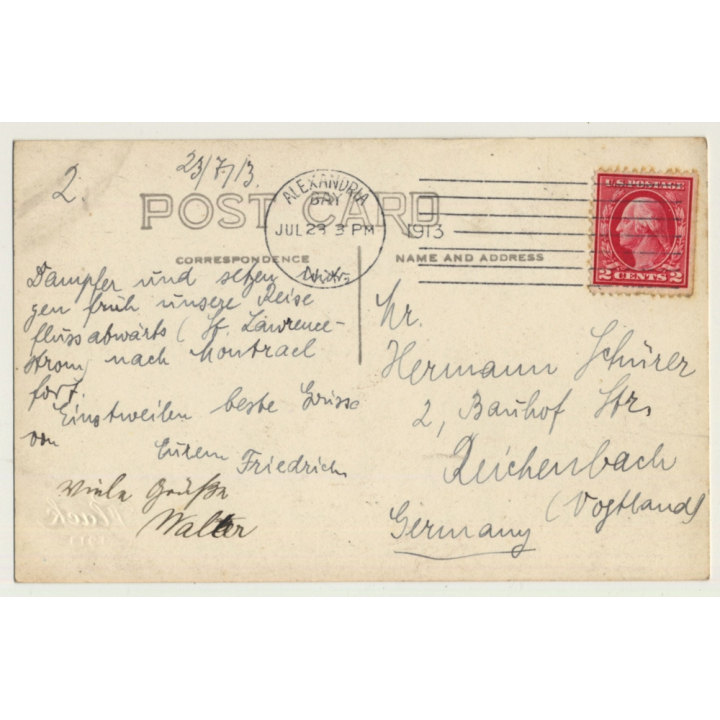 2.
23/7/13.
POST CARD
ALEXANDRIA
BAY
JUL 23 3 PM
1913
N.Y.
U.S. POSTAGE
2 CENTS 2
CORRESPONDENCE
NAME AND ADDRESS
Dampfer und setzen
gen früh unsere Reise
flussabwärts (St. Lawrence-
strom) nach Montrael
fort.
Einstweilen beste Grüsse
von
Eurem Friedrich
Viele Grüße
Walter
Hr.
Hermann Schürer
2, Bauhof Str,
Reichenbach
(Vogtland)
Germany